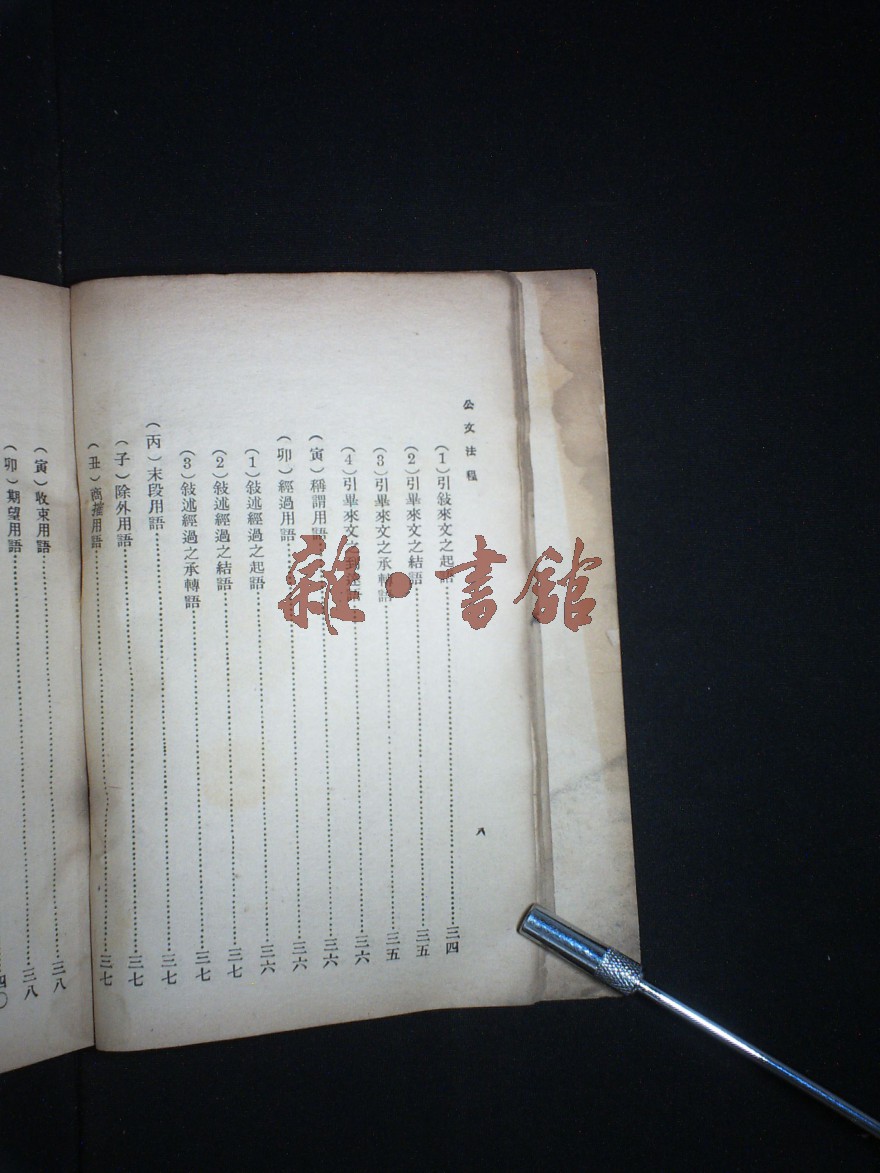 公文法程
八
(1)引敍來文之起語……三四
(2)引畢來文之結語……三五
(3)引畢來文之承轉語……三五
(4)引畢來文之 語……三六
(寅)稱謂用語……三六
(卯)經過用語……三六
(1)敍述經過之起語……三六
(2)敍述經過之結語……三七
(3)敍述經過之承轉語……三七
(丙)末段用語……三七
(子)除外用語……三七
(丑)商搉用語……三七
三八
(寅)收束用語……三八
(卯)期望用語……四〇
雜·書館